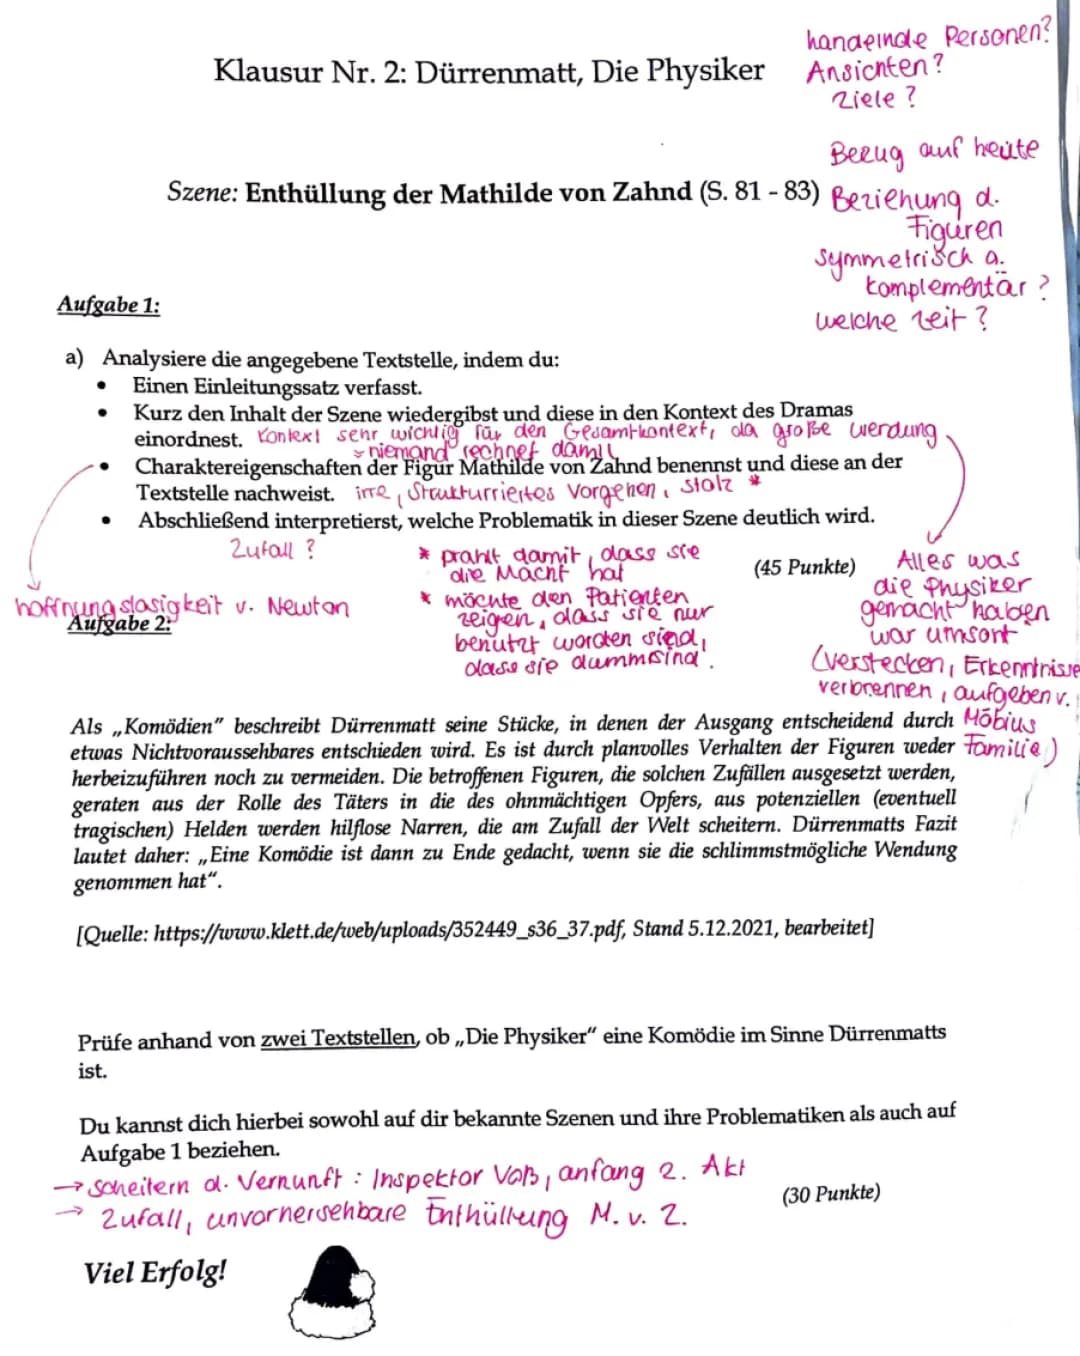 handelnde Personen?
Klausur Nr. 2: Dürrenmatt, Die Physiker
Ansichten?
Ziele?
Bezug auf heute
Szene: Enthüllung der Mathilde von Zahnd (S. 81 - 83)
Beziehung d.
Figuren
symmetrisch o.
komplementär?
welche zeit?
Aufgabe 1:
a) Analysiere die angegebene Textstelle, indem du:
• Einen Einleitungssatz verfasst.
• Kurz den Inhalt der Szene wiedergibst und diese in den Kontext des Dramas
einordnest. Kontext sehr wichtig für den Gesamtkontext, da große werdung
niemand rechnet damit
• Charaktereigenschaften der Figur Mathilde von Zahnd benennst und diese an der
Textstelle nachweist. irre, Strukturriertes Vorgehen, stolz *
• Abschließend interpretierst, welche Problematik in dieser Szene deutlich wird.
Zufall?
* prahlt damit, dass sie
die Macht hat
* möchte den Patienten
zeigen, dass sie nur
benutzt worden sind,
dass sie dumm sind.
(45 Punkte)
Alles was
die Physiker
gemacht haben
war umsont
(verstecken, Erkenntnisse
verbrennen, aufgeben v.
Möbius
Familie)
hoffnungslosigkeit v. Newton
Aufgabe 2:
Als „Komödien“ beschreibt Dürrenmatt seine Stücke, in denen der Ausgang entscheidend durch
etwas Nichtvoraussehbares entschieden wird. Es ist durch planvolles Verhalten der Figuren weder
herbeizuführen noch zu vermeiden. Die betroffenen Figuren, die solchen Zufällen ausgesetzt werden,
geraten aus der Rolle des Täters in die des ohnmächtigen Opfers, aus potenziellen (eventuell
tragischen) Helden werden hilflose Narren, die am Zufall der Welt scheitern. Dürrenmatts Fazit
lautet daher: „Eine Komödie ist dann zu Ende gedacht, wenn sie die schlimmstmögliche Wendung
genommen hat“.
[Quelle: https://www.klett.de/web/uploads/352449_s36_37.pdf, Stand 5.12.2021, bearbeitet]
Prüfe anhand von zwei Textstellen, ob „Die Physiker“ eine Komödie im Sinne Dürrenmatts
ist.
Du kannst dich hierbei sowohl auf dir bekannte Szenen und ihre Problematiken als auch auf
Aufgabe 1 beziehen.
→ scheitern d. Vernunft: Inspektor Voß, anfang 2. Akt
(30 Punkte)
→ Zufall, unvorhersehbare Enthüllung M. v. Z.
Viel Erfolg!